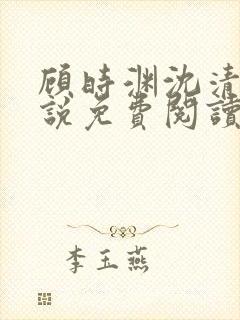 顾时渊沈清
说免费阅读
李玉燕